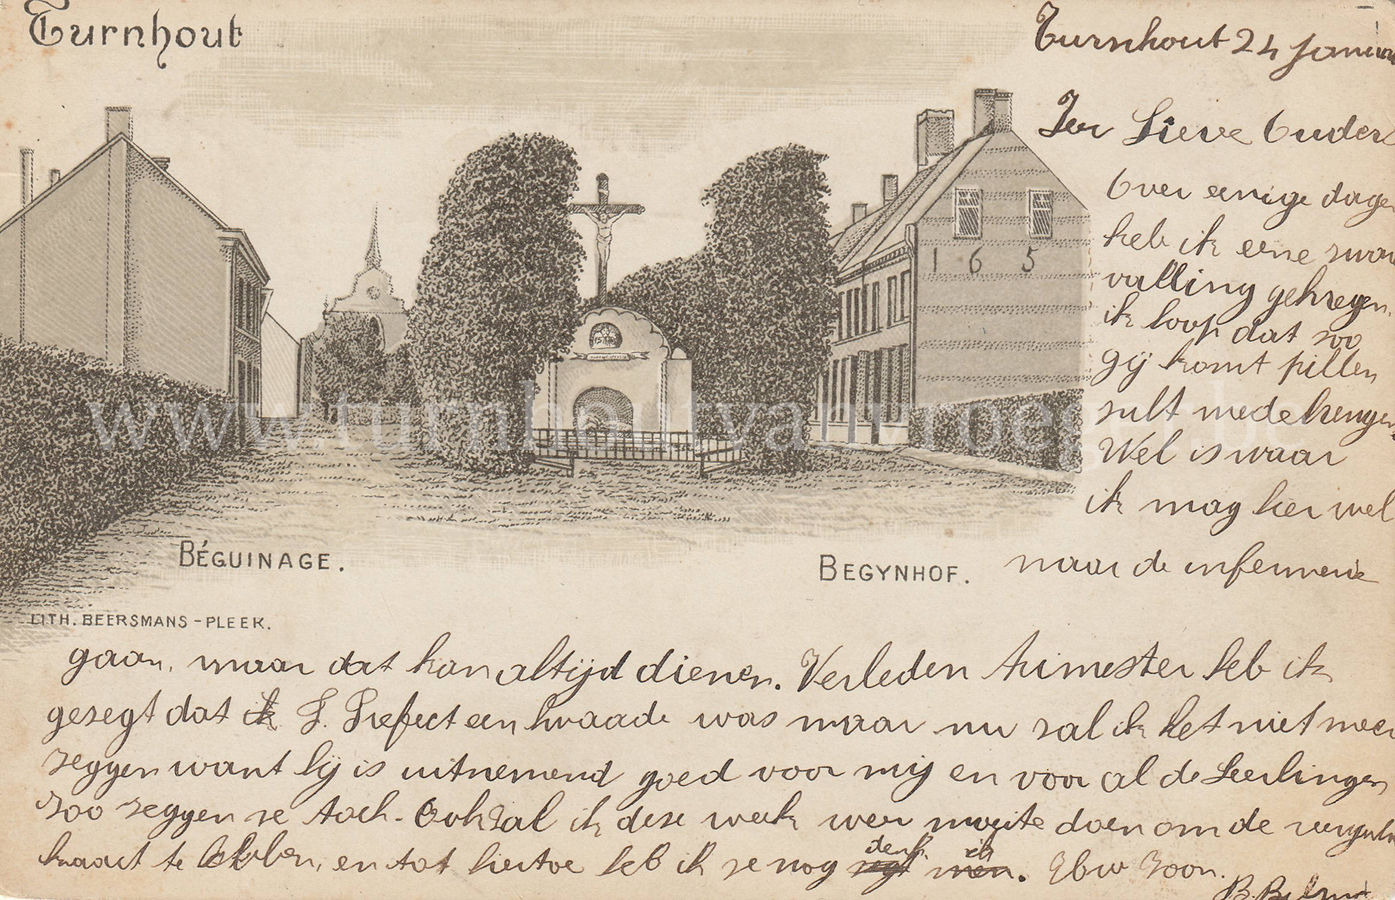 Turnhout
Turnhout 24 Januari
Zeer Lieve Ouders
Over eenige dagen
heb ik eene zwa
valling gekregen.
ik hoop dat zoo
gij komt pillen
sult medebrengen
Wel is waar
ik mag hier wel
naar de
165
www.turnhoutvanvroeger.be
BÉGUINAGE.
BEGYNHOF.
LITH. BEERSMANS-PLEEK.
gaan, maar dat kan altijd dienen. Verleden trimester heb ik
gezegt dat P. Prefect een kwaade was maar nu zal ik het niet meer
zeggen want hij is uitnemend goed voor mij en voor al de Leerlingen
zoo zeggen ze toch. Ook zal ik deze week weer moeite doen om de
kaart te hebben, en tot hiertoe heb ik ze nog denk ik. Ubw Zoon.
B.